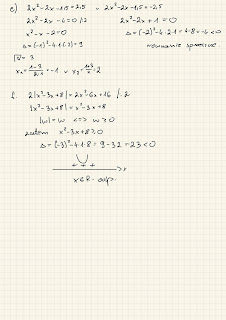 e) 2x²-2x-1,5=2,5 v 2x²-2x-1,5=-2,5
2x²-2x-4=0 /:2 2x²-2x+1=0
x²-x-2=0 Δ=(-2)²-4·2·1=4-8=-4<0
Δ=(-1)²-4·1·(-2)=9 równanie sprzeczne
√Δ=3
x₁=(1-3)/(2·1)=-1 v x₂=(1+3)/2=2
f. 2|x²-3x+8|=2x²-6x+16 /:2
|x²-3x+8|=x²-3x+8
|w|=w <=> w≥0
zatem x²-3x+8≥0
Δ=(-3)²-4·1·8=9-32=-23<0
+ + +
x
x∈R - odp.